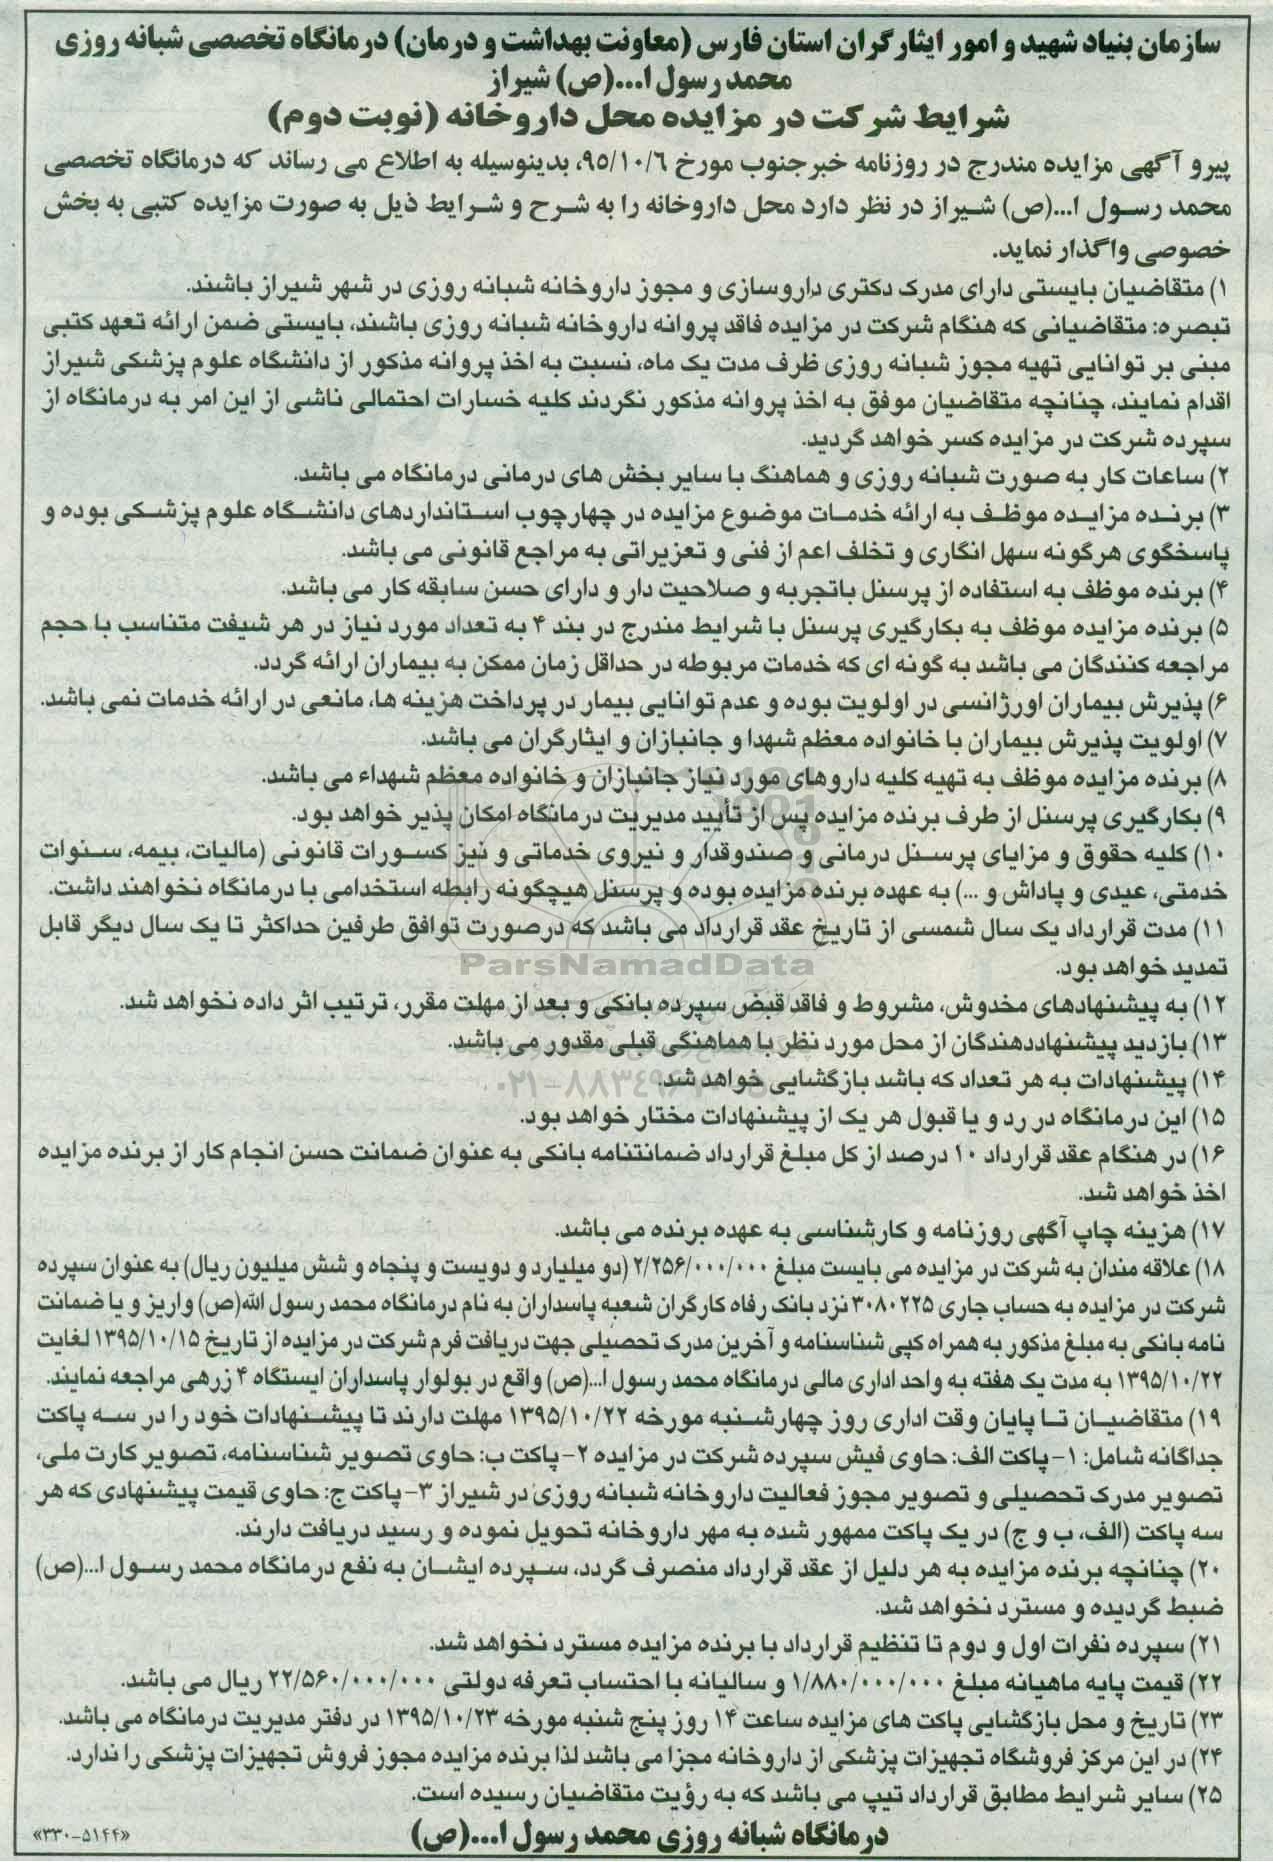 سازمان بنیاد شهید و امور ایثارگران استان فارس (معاونت بهداشت و درمان) درمانگاه تخصصی شبانه روزی
محمد رسول ا...(ص) شیراز
شرایط شرکت در مزایده محل داروخانه (نوبت دوم)
پیرو آگهی مزایده مندرج در روزنامه خبرجنوب مورخ ۹۵/۱۰/۶، بدینوسیله به اطلاع می رساند که درمانگاه تخصصی
محمد رسول ا...(ص) شیراز در نظر دارد محل داروخانه را به شرح و شرایط ذیل به صورت مزایده کتبی به بخش
خصوصی واگذار نماید.
۱) متقاضیان بایستی دارای مدرک دکتری داروسازی و مجوز داروخانه شبانه روزی در شهر شیراز باشند.
تبصره: متقاضیانی که هنگام شرکت در مزایده فاقد پروانه داروخانه شبانه روزی باشند، بایستی ضمن ارائه تعهد کتبی
مبنی بر توانایی تهیه مجوز شبانه روزی ظرف مدت یک ماه، نسبت به اخذ پروانه مذکور از دانشگاه علوم پزشکی شیراز
اقدام نمایند، چنانچه متقاضیان موفق به اخذ پروانه مذکور نگردند کلیه خسارات احتمالی ناشی از این امر به درمانگاه از
سپرده شرکت در مزایده کسر خواهد گردید.
۲) ساعات کار به صورت شبانه روزی و هماهنگ با سایر بخش های درمانی درمانگاه می باشد.
۳) برنده مزایده موظف به ارائه خدمات موضوع مزایده در چهارچوب استانداردهای دانشگاه علوم پزشکی بوده و
پاسخگوی هرگونه سهل انگاری و تخلف اعم از فنی و تعزیراتی به مراجع قانونی می باشد.
۴) برنده موظف به استفاده از پرسنل باتجربه و صلاحیت دار و دارای حسن سابقه کار می باشد.
۵) برنده مزایده موظف به بکارگیری پرسنل با شرایط مندرج در بند ۴ به تعداد مورد نیاز در هر شیفت متناسب با حجم
مراجعه کنندگان می باشد به گونه ای که خدمات مربوطه در حداقل زمان ممکن به بیماران ارائه گردد.
۶) پذیرش بیماران اورژانسی در اولویت بوده و عدم توانایی بیمار در پرداخت هزینه ها، مانعی در ارائه خدمات نمی باشد.
۷) اولویت پذیرش بیماران با خانواده معظم شهدا و جانبازان و ایثارگران می باشد.
۸) برنده مزایده موظف به تهیه کلیه داروهای مورد نیاز جانبازان و خانواده معظم شهداء می باشد.
۹) بکارگیری پرسنل از طرف برنده مزایده پس از تأیید مدیریت درمانگاه امکان پذیر خواهد بود.
۱۰) کلیه حقوق و مزایای پرسنل درمانی و صندوقدار و نیروی خدماتی و نیز کسورات قانونی (مالیات، بیمه، سنوات
خدمتی، عیدی و پاداش و ...) به عهده برنده مزایده بوده و پرسنل هیچگونه رابطه استخدامی با درمانگاه نخواهند داشت.
۱۱) مدت قرارداد یک سال شمسی از تاریخ عقد قرارداد می باشد که درصورت توافق طرفین حداکثر تا یک سال دیگر قابل
تمدید خواهد بود.
ParsNamadData
۱۲) به پیشنهادهای مخدوش، مشروط و فاقد قبض سپرده بانکی و بعد از مهلت مقرر، ترتیب اثر داده نخواهد شد.
۱۳) بازدید پیشنهاددهندگان از محل مورد نظر با هماهنگی قبلی مقدور می باشد.
۱۴) پیشنهادات به هر تعداد که باشد بازگشایی خواهد شد.
۱۵) این درمانگاه در رد و یا قبول هر یک از پیشنهادات مختار خواهد بود.
۱۶) در هنگام عقد قرارداد ۱۰ درصد از کل مبلغ قرارداد ضمانتنامه بانکی به عنوان ضمانت حسن انجام کار از برنده مزایده
اخذ خواهد شد.
۱۷) هزینه چاپ آگهی روزنامه و کارشناسی به عهده برنده می باشد.
۱۸) علاقه مندان به شرکت در مزایده می بایست مبلغ ۲/۲۵۶/۰۰۰/۰۰۰ (دو میلیارد و دویست و پنجاه و شش میلیون ریال) به عنوان سپرده
شرکت در مزایده به حساب جاری ۳۰۸۰۲۲۵ نزد بانک رفاه کارگران شعبه پاسداران به نام درمانگاه محمد رسول الله(ص) واریز و یا ضمانت
نامه بانکی به مبلغ مذکور به همراه کپی شناسنامه و آخرین مدرک تحصیلی جهت دریافت فرم شرکت در مزایده از تاریخ ۱۳۹۵/۱۰/۱۵ لغایت
۱۳۹۵/۱۰/۲۲ به مدت یک هفته به واحد اداری مالی درمانگاه محمد رسول ا...(ص) واقع در بولوار پاسداران ایستگاه ۴ زرهی مراجعه نمایند.
۱۹) متقاضیان تا پایان وقت اداری روز چهارشنبه مورخه ۱۳۹۵/۱۰/۲۲ مهلت دارند تا پیشنهادات خود را در سه پاکت
جداگانه شامل: ۱- پاکت الف: حاوی فیش سپرده شرکت در مزایده ۲- پاکت ب: حاوی تصویر شناسنامه، تصویر کارت ملی،
تصویر مدرک تحصیلی و تصویر مجوز فعالیت داروخانه شبانه روزی در شیراز ۳- پاکت ج: حاوی قیمت پیشنهادی که هر
سه پاکت (الف، ب و ج) در یک پاکت ممهور شده به مهر داروخانه تحویل نموده و رسید دریافت دارند.
۲۰) چنانچه برنده مزایده به هر دلیل از عقد قرارداد منصرف گردد، سپرده ایشان به نفع درمانگاه محمد رسول ا...(ص)
ضبط گردیده و مسترد نخواهد شد.
۲۱) سپرده نفرات اول و دوم تا تنظیم قرارداد با برنده مزایده مسترد نخواهد شد.
۲۲) قیمت پایه ماهیانه مبلغ ۱/۸۸۰/۰۰۰/۰۰۰ و سالیانه با احتساب تعرفه دولتی ۲۲/۵۶۰/۰۰۰/۰۰۰ ریال می باشد.
۲۳) تاریخ و محل بازگشایی پاکت های مزایده ساعت ۱۴ روز پنج شنبه مورخه ۱۳۹۵/۱۰/۲۳ در دفتر مدیریت درمانگاه می باشد.
۲۴) در این مرکز فروشگاه تجهیزات پزشکی از داروخانه مجزا می باشد لذا برنده مزایده مجوز فروش تجهیزات پزشکی را ندارد.
۲۵) سایر شرایط مطابق قرارداد تیپ می باشد که به رؤیت متقاضیان رسیده است.
درمانگاه شبانه روزی محمد رسول ا...(ص)
«۳۳۰-۵۱۴۴»